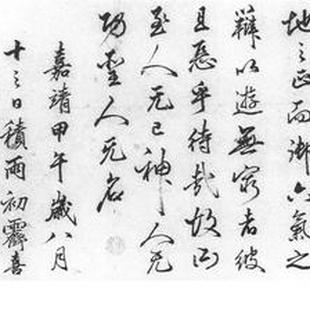 地之正而御六氣之
辯以遊無窮者彼
且惡乎待哉故曰
至人无己神人无
功聖人无名
嘉靖甲午歲八月
十三日積雨初霽喜